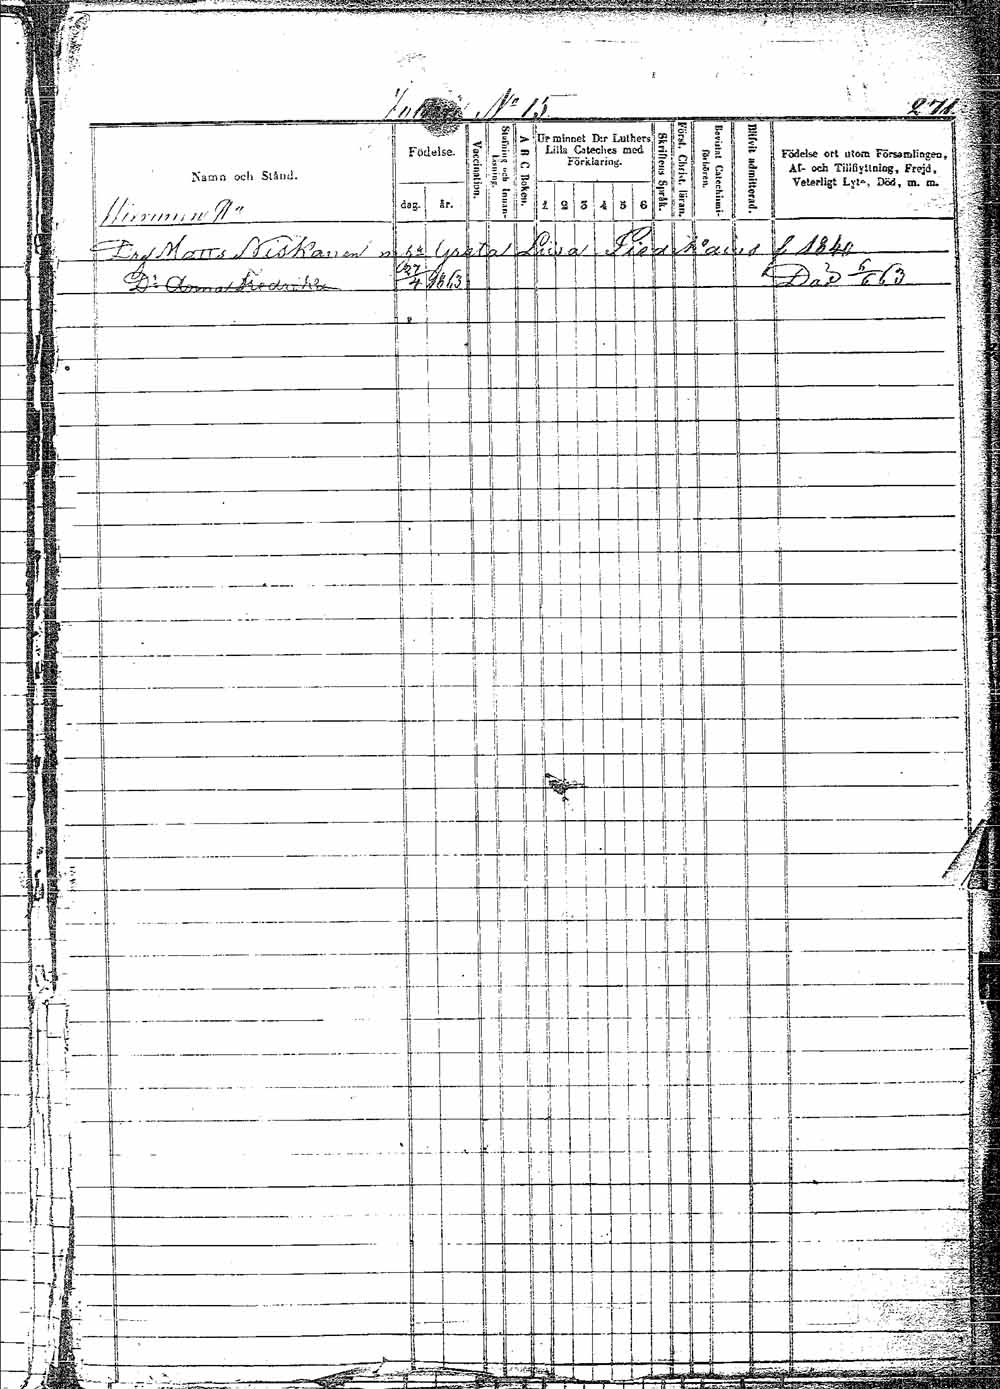 Nº 15 271.
Namn och Stånd.
Födelse.
dag. år.
Vaccination.
Stafning och Innanläsning.
A B C Boken.
Ur minnet D:r Luthers
Lilla Cateches med
Förklaring.
1 2 3 4 5 6
Skriftens Språk.
Först. Christ. läran.
Bevistat Catechismiförhören.
Blifvit admitterad.
Födelse ort utom Församlingen,
Af- och Tillflyttning, Frejd,
Veterligt Lyte, Död, m. m.
Matts Niskanen Greta Liisa f 1840
D: Anna Fredrika 27/4 1863 Död 6/6 63